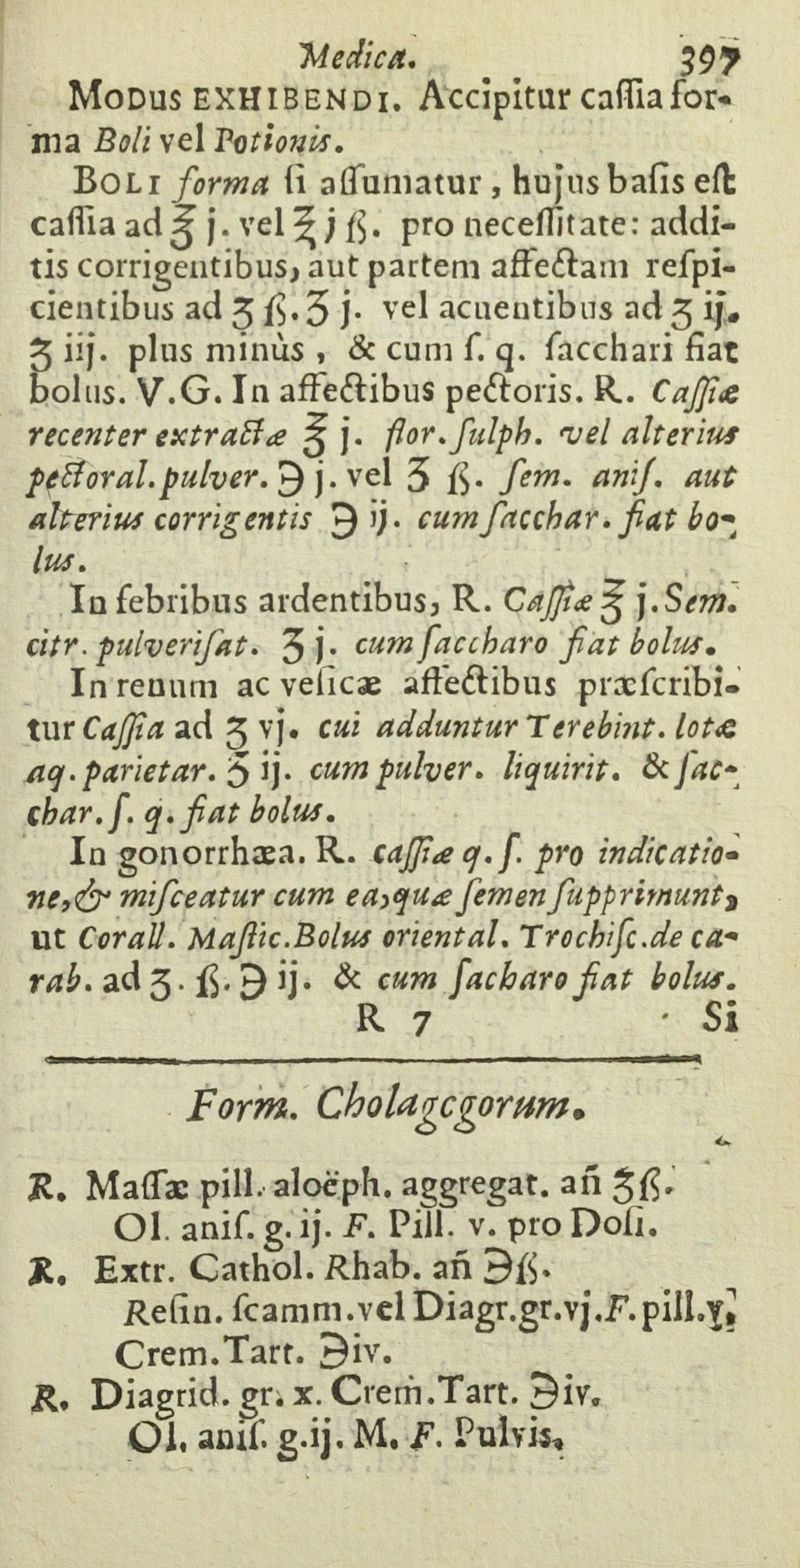 Medica. 397
MODUS EXHIBENDI. Accipitur caſſia for-
ma Boli vel Potionis.
BOLI forma ſi aſſumatur, hujus baſis eſt
caſſia ad ℥ j. vel ℥ j ß. pro neceſſitate: addi-
tis corrigentibus, aut partem affectam reſpi-
cientibus ad ʒ ß. ʒ j. vel acuentibus ad ʒ ij.
ʒ iij. plus minùs, & cum ſ. q. ſacchari fiat
bolus. V.G. In affectibus pectoris. R. Caſſiæ
recenter extractæ ℥ j. flor. ſulph. vel alterius
pectoral. pulver. ℈ j. vel ʒ ß. ſem. aniſ. aut
alterius corrigentis ℈ ij. cum ſacchar. fiat bo-
lus.
In febribus ardentibus, R. Caſſiæ ℥ j. Sem.
citr. pulveriſat. ʒ j. cum ſaccharo fiat bolus.
In renum ac veſicæ affectibus præſcribi-
tur Caſſia ad ʒ vj. cui adduntur Terebint. lotæ
aq. parietar. ʒ ij. cum pulver. liquirit. & ſac-
char. ſ. q. fiat bolus.
In gonorrhæa. R. caſſiæ q. ſ. pro indicatio-
ne, & miſceatur cum ea, quæ ſemen ſupprimunt,
ut Corall. Maſtic. Bolus oriental. Trochiſc. de ca-
rab. ad ʒ. ß. ℈ ij. & cum ſacharo fiat bolus.
R 7 Si
Form. Cholagcgorum.
R. Maſſæ pill. aloëph. aggregat. añ ʒß.
Ol. aniſ. g. ij. F. Pill. v. pro Doſi.
R. Extr. Cathol. Rhab. añ ℈ß.
Reſin. ſcamm. vel Diagr. gr. vj. F. pill. v.
Crem. Tart. ℈iv.
R. Diagrid. gr. x. Crem. Tart. ℈iv.
Ol. aniſ. g. ij. M. F. Pulvis.